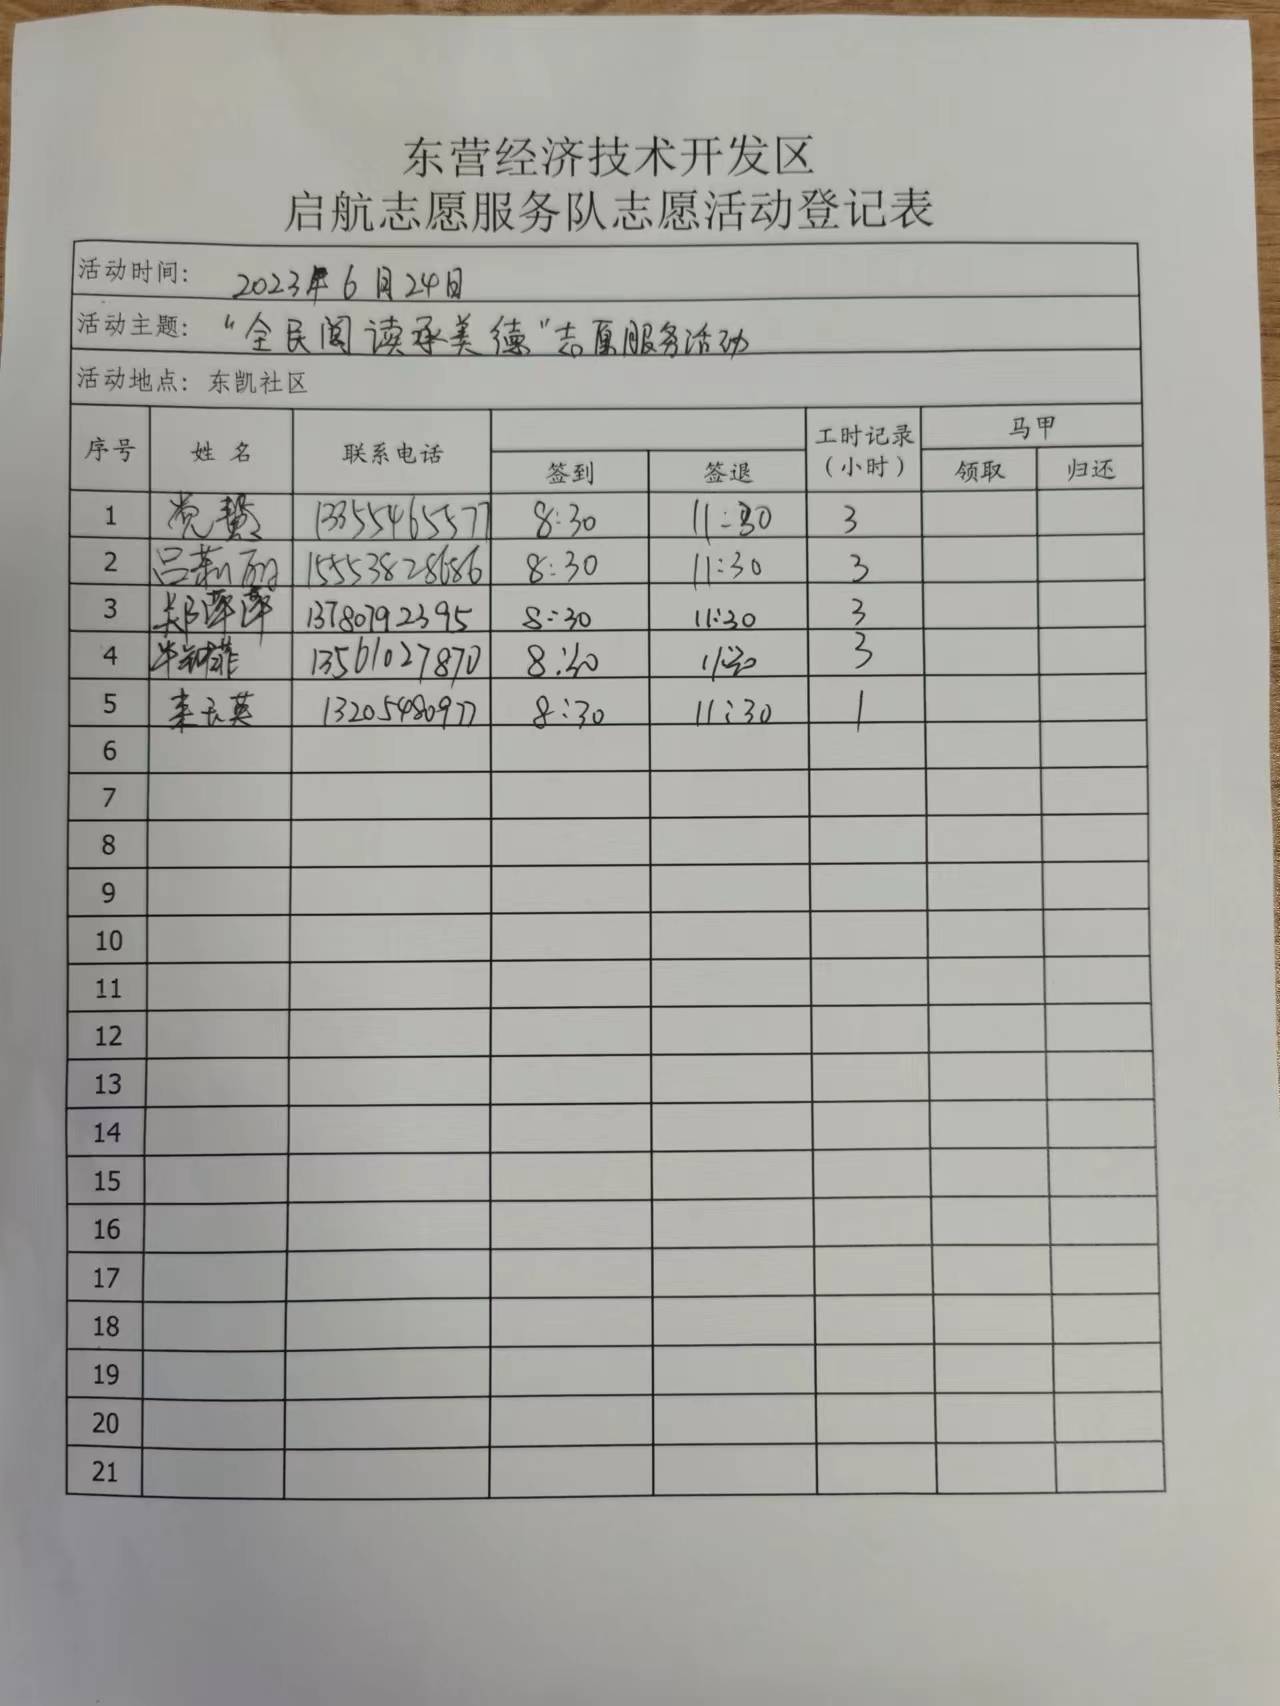 东营经济技术开发区
启航志愿服务队志愿活动登记表
活动时间: 2023年6月24日
活动主题: “全民阅读承美德”志愿服务活动
活动地点: 东凯社区
序号 姓名 联系电话 签到 签退 工时记录(小时) 马甲 领取 归还
1 党 13355465577 8:30 11:30 3
2 吕莉丽 15553828686 8:30 11:30 3
3 郑萍萍 13780792395 8:30 11:30 3
4 13561027870 8:30 11:30 3
5 英 13205480977 8:30 11:30 1
6
7
8
9
10
11
12
13
14
15
16
17
18
19
20
21